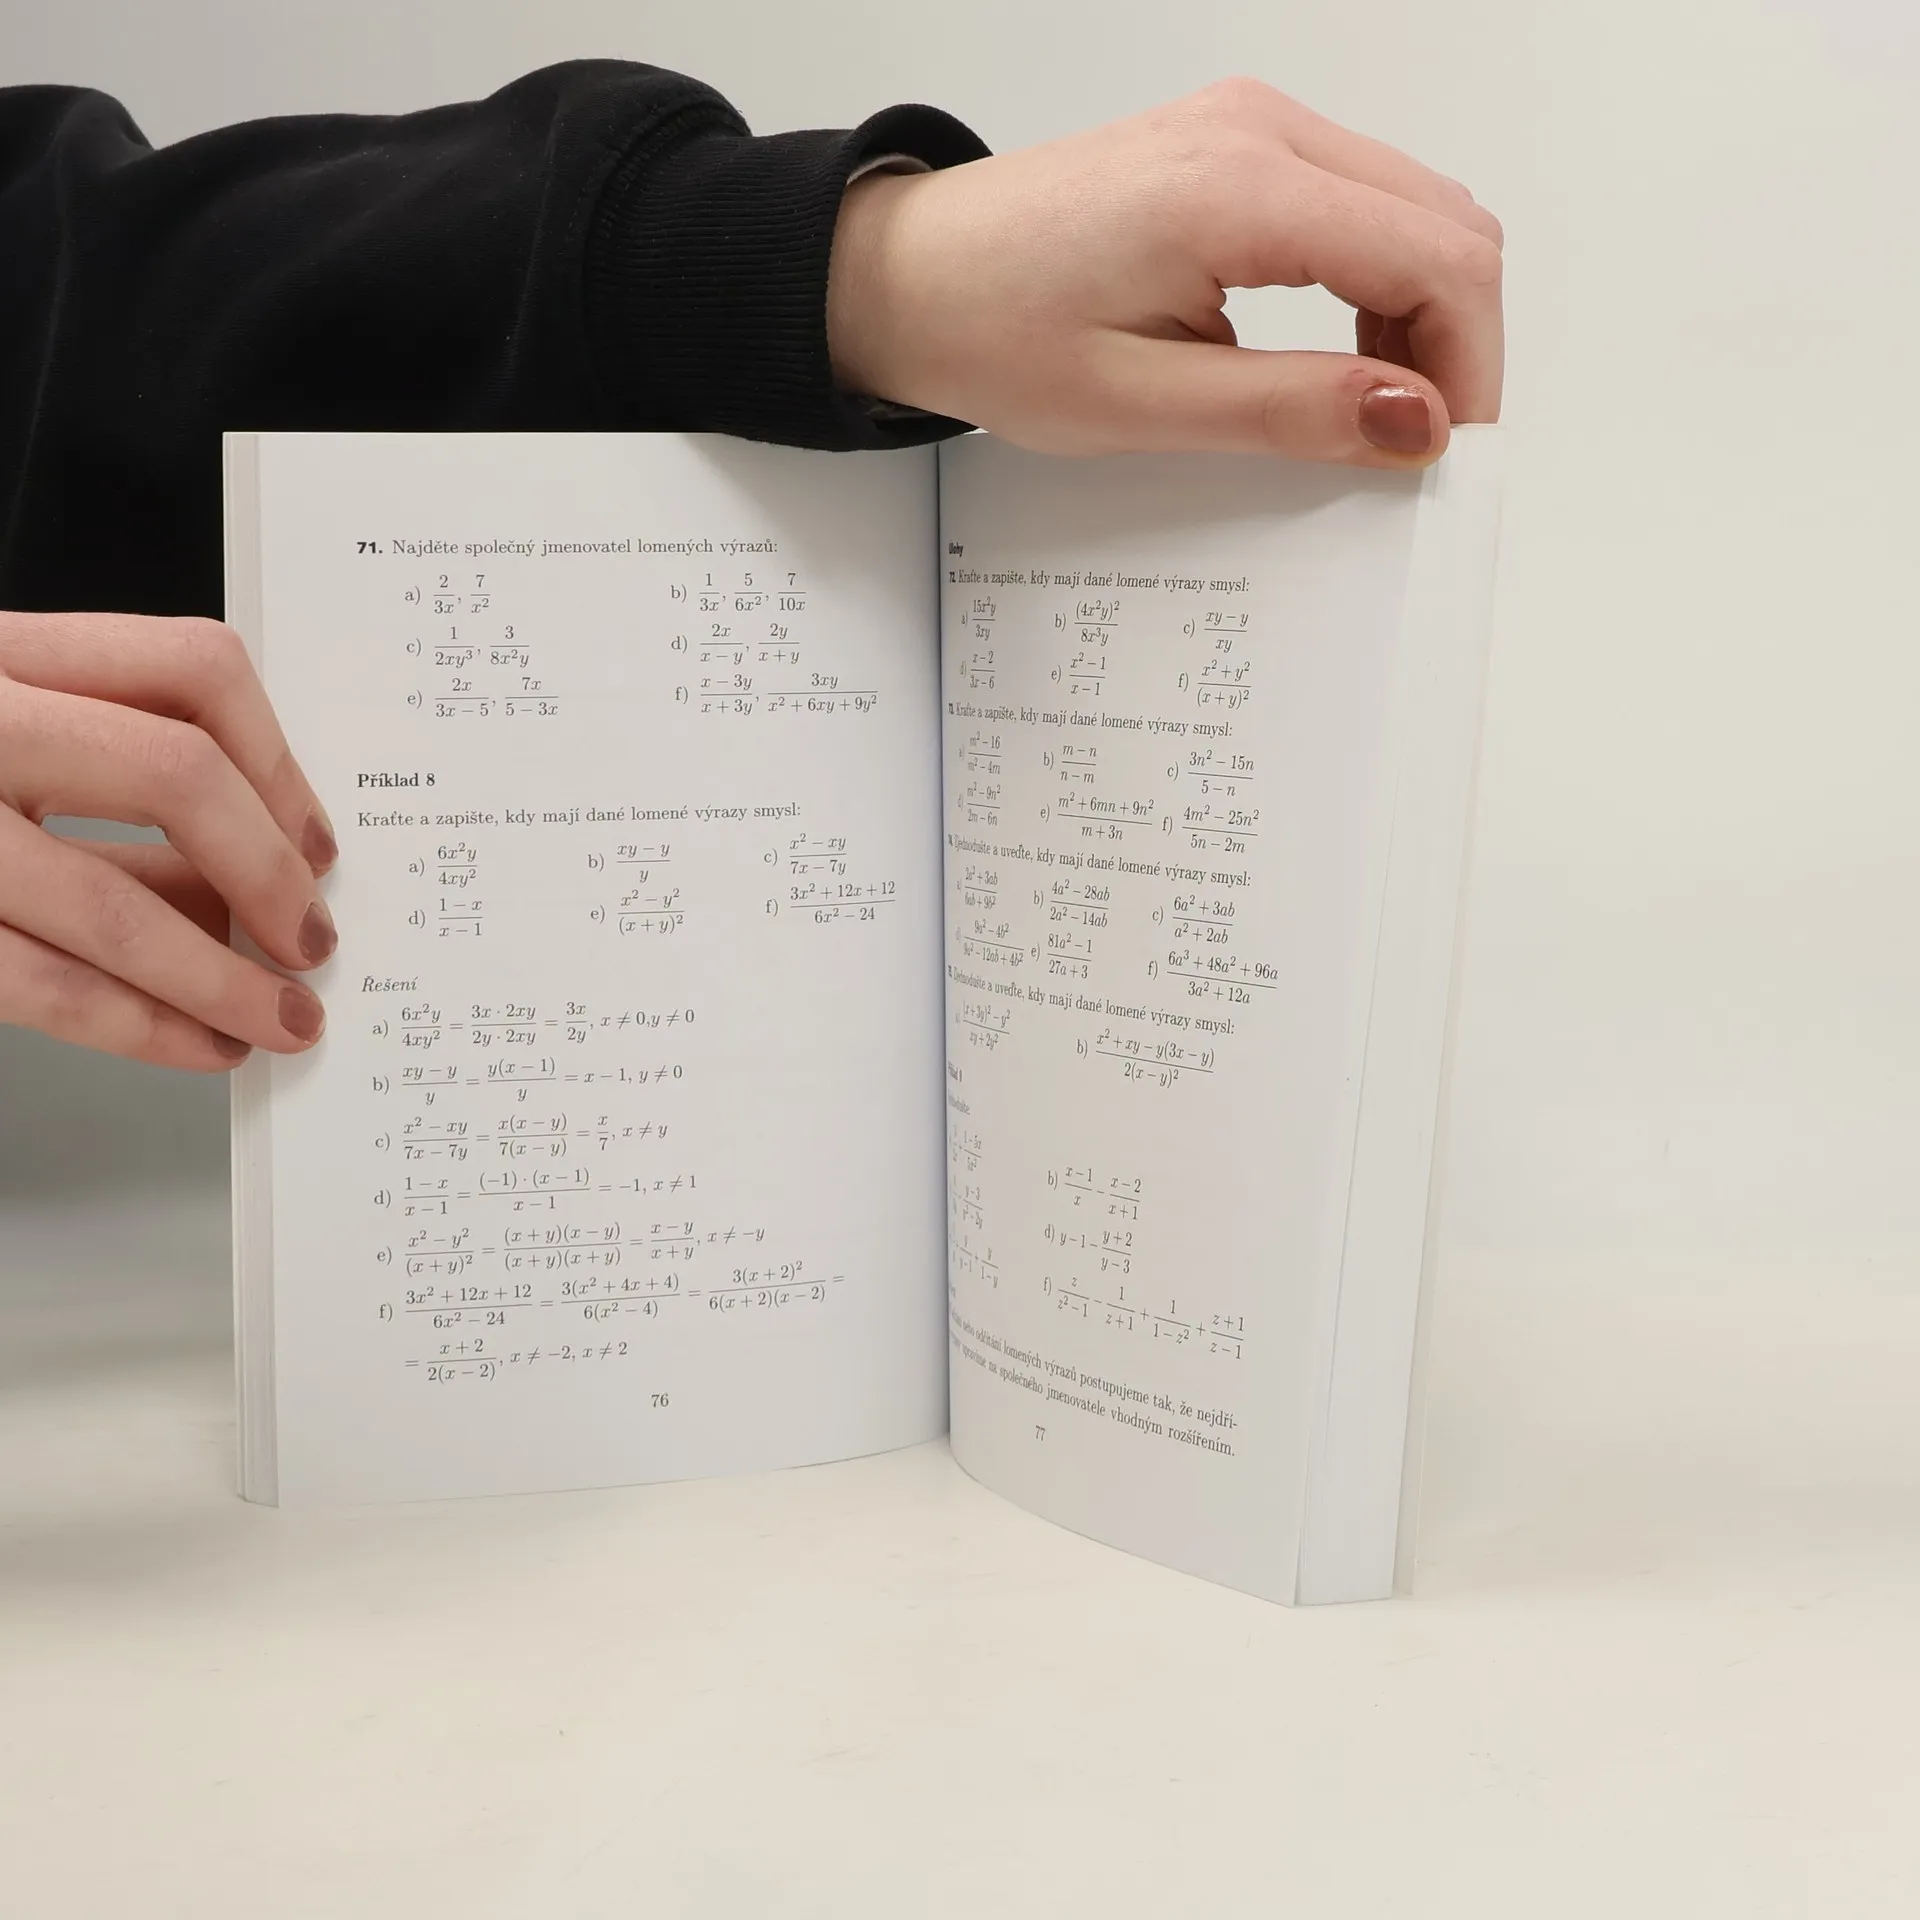 71. Najděte společný jmenovatel lomených výrazů:
a) 2/(3x), 7/x² b) 1/(3x), 5/(6x²), 7/(10x)
c) 1/(2xy³), 3/(8x²y) d) 2x/(x − y), 2y/(x + y)
e) 2x/(3x − 5), 7x/(5 − 3x) f) (x − 3y)/(x + 3y), 3xy/(x² + 6xy + 9y²)
Příklad 8
Kraťte a zapište, kdy mají dané lomené výrazy smysl:
a) 6x²y/(4xy²) b) (xy − y)/y c) (x² − xy)/(7x − 7y)
d) (1 − x)/(x − 1) e) (x² − y²)/(x + y)² f) (3x² + 12x + 12)/(6x² − 24)
Řešení
a) 6x²y/(4xy²) = (3x · 2xy)/(2y · 2xy) = 3x/(2y), x ≠ 0,y ≠ 0
b) (xy − y)/y = y(x − 1)/y = x − 1, y ≠ 0
c) (x² − xy)/(7x − 7y) = x(x − y)/(7(x − y)) = x/7, x ≠ y
d) (1 − x)/(x − 1) = (−1) · (x − 1)/(x − 1) = −1, x ≠ 1
e) (x² − y²)/(x + y)² = (x + y)(x − y)/((x + y)(x + y)) = (x − y)/(x + y), x ≠ −y
f) (3x² + 12x + 12)/(6x² − 24) = 3(x² + 4x + 4)/(6(x² − 4)) = 3(x + 2)²/(6(x + 2)(x − 2)) =
= (x + 2)/(2(x − 2)), x ≠ −2, x ≠ 2
76
Úlohy
72. Kraťte a zapište, kdy mají dané lomené výrazy smysl:
a) 15x²y/(3xy) b) (4x²y)²/(8x³y) c) (xy − y)/(xy)
d) (x − 2)/(3x − 6) e) (x² − 1)/(x − 1) f) (x² + y²)/(x + y)²
Kraťte a zapište, kdy mají dané lomené výrazy smysl:
a) (m² − 16)/(m² − 4m) b) (m − n)/(n − m) c) (3n² − 15n)/(5 − n)
d) (m² − 9n²)/(2m − 6n) e) (m² + 6mn + 9n²)/(m + 3n) f) (4m² − 25n²)/(5n − 2m)
Zjednodušte a uveďte, kdy mají dané lomené výrazy smysl:
(2a² + 3ab)/(6ab + 9b²) b) (4a² − 28ab)/(2a² − 14ab) c) (6a² + 3ab)/(a² + 2ab)
(9a² − 4b²)/(9a² − 12ab + 4b²) e) (81a² − 1)/(27a + 3) f) (6a³ + 48a² + 96a)/(3a² + 12a)
Zjednodušte a uveďte, kdy mají dané lomené výrazy smysl:
((x + 3y)² − y²)/(xy + 2y²) b) (x² + xy − y(3x − y))/(2(x − y)²)
b) (x − 1)/x − (x − 2)/(x + 1)
d) y − 1 − (y + 2)/(y − 3)
f) z/(z² − 1) − 1/(z + 1) + 1/(1 − z²) + (z + 1)/(z − 1)
nebo odčítání lomených výrazů postupujeme tak, že nejdří-
upravíme na společného jmenovatele vhodným rozšířením.
77